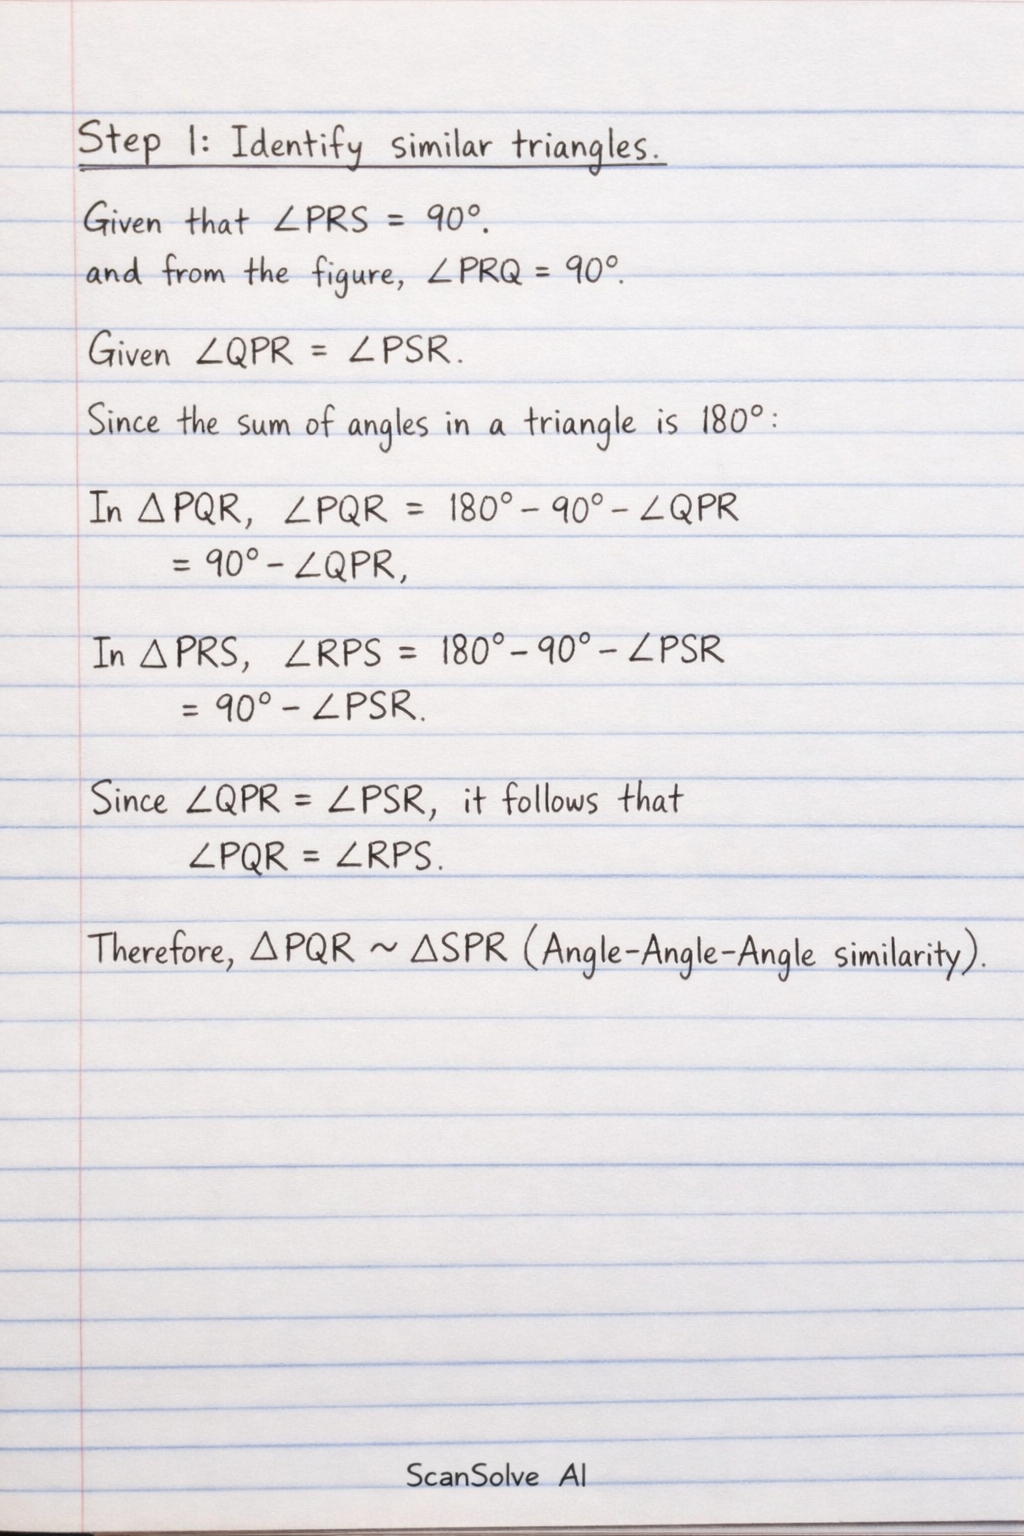 Step 1: Identify similar triangles.
Given that ∠PRS = 90°.
and from the figure, ∠PRQ = 90°.
Given ∠QPR = ∠PSR.
Since the sum of angles in a triangle is 180°:
In △PQR, ∠PQR = 180° - 90° - ∠QPR
= 90° - ∠QPR,
In △PRS, ∠RPS = 180° - 90° - ∠PSR
= 90° - ∠PSR.
Since ∠QPR = ∠PSR, it follows that
∠PQR = ∠RPS.
Therefore, △PQR ~ △SPR (Angle-Angle-Angle similarity).
ScanSolve AI